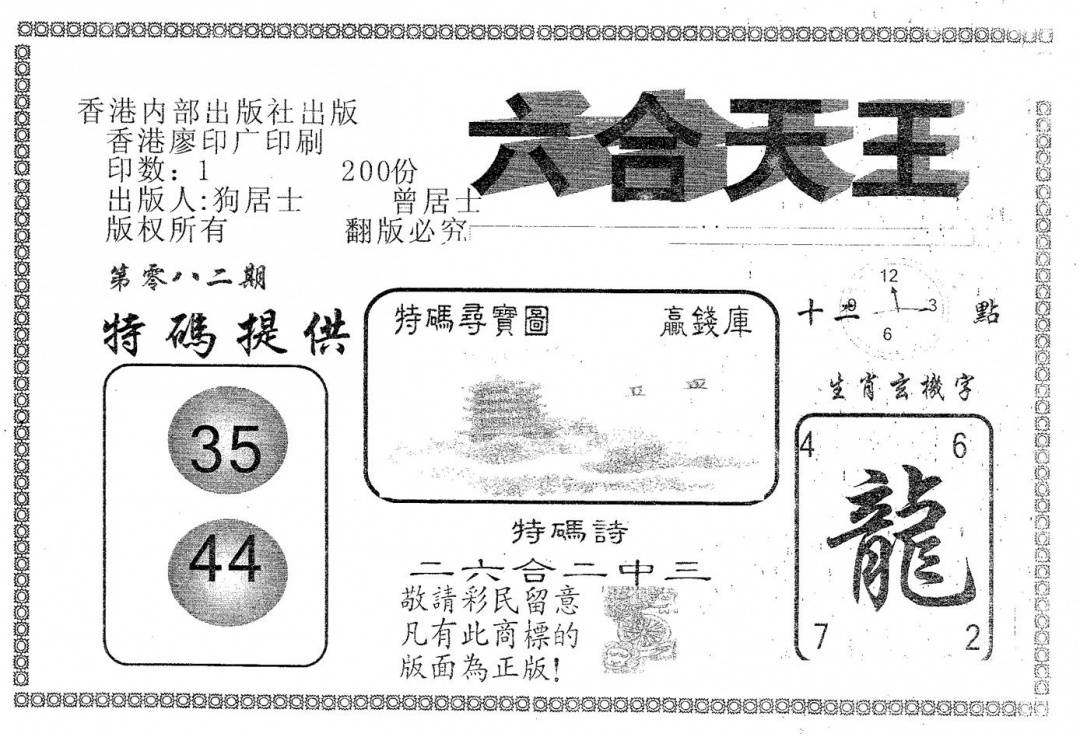 香港内部出版社出版
香港廖印广印刷
印数：1 200份
出版人:狗居士 曾居士
版权所有 翻版必究
六合天王
第零八二期
特碼提供
35
44
特碼尋寶圖 贏錢庫
特碼詩
二六合二中三
敬請彩民留意
凡有此商標的
版面為正版!
十二 點
12
9 3
6
生肖玄機字
4 6
龍
7 2